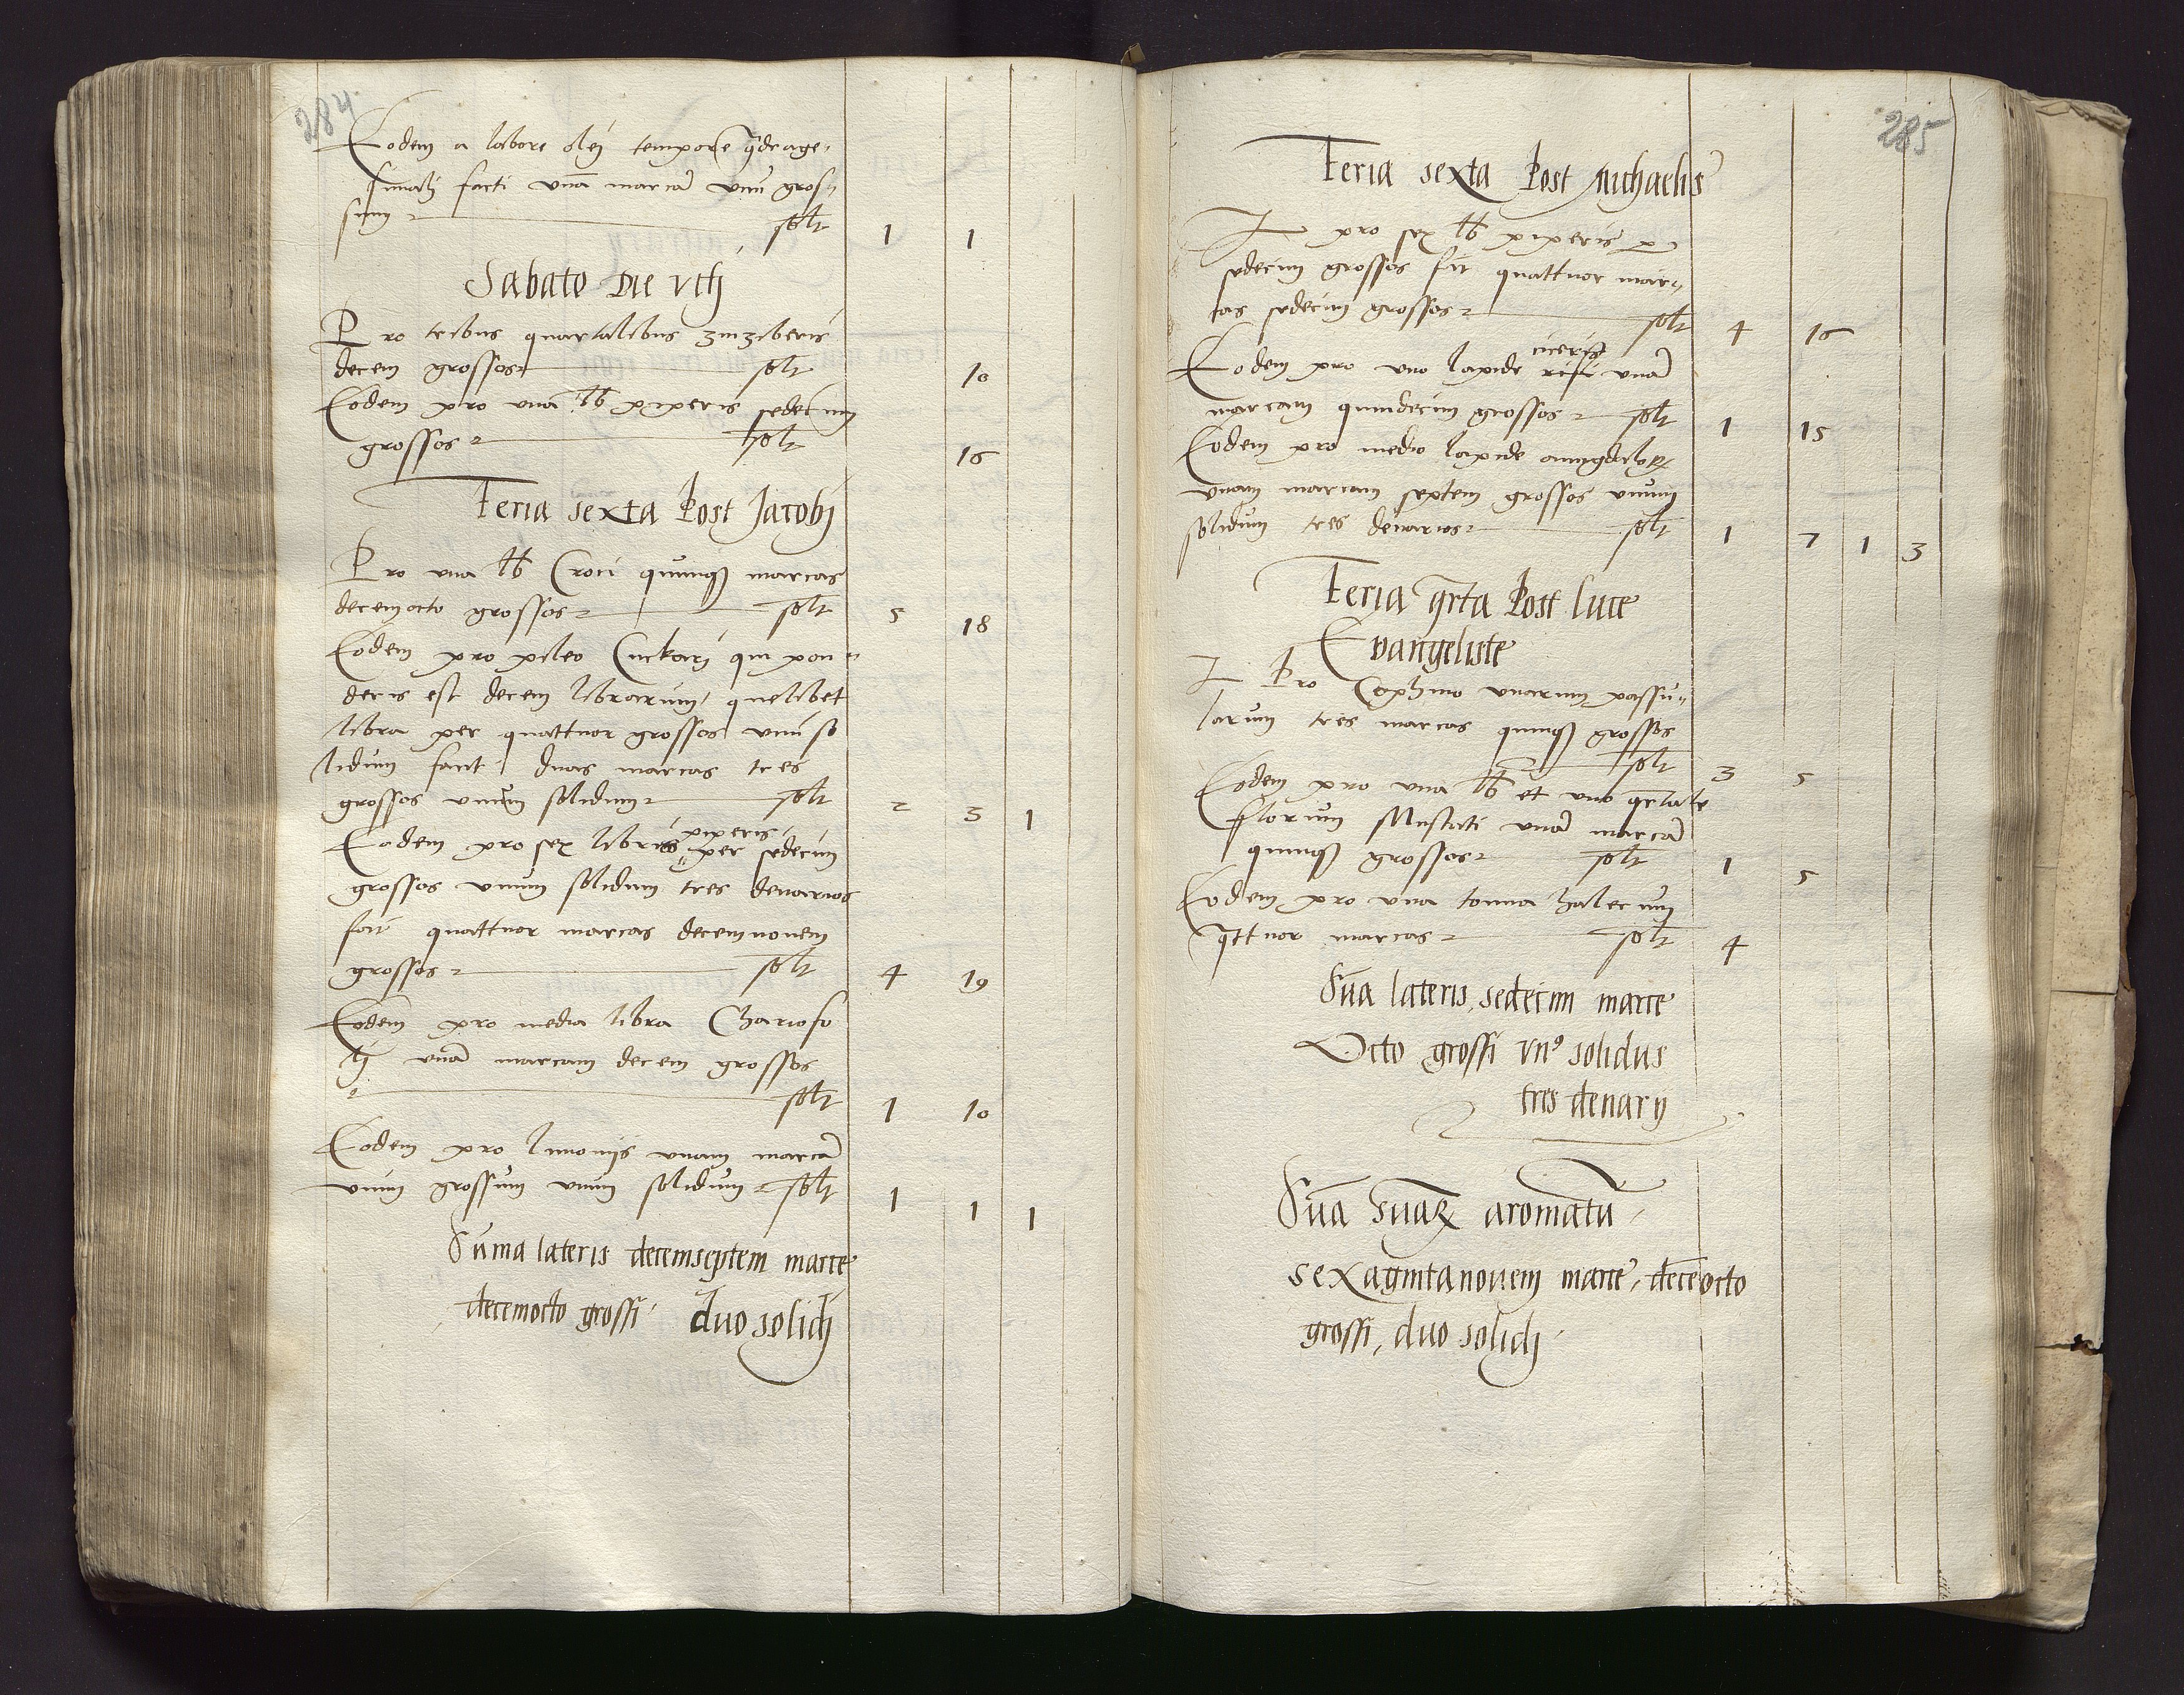 284
Eodem a labore olej tempore q̄drage„
simalj facti vnā marcā vnū gros„
sum solt 1 1
Sabato Die vtj
Pro tribus quartalibus zinziberis
decem grossos solt 10
Eodem pro vna lb piperis sedecim
grossos solt 16
Feria sexta Post Jacobj
Pro vna lb Croci quinqꝫ marcas
decemocto grossos solt 5 18
Eodem pro pileo Cuckarj qui pon„
deris est decem librarum, quelibet
libra per quattuor grossos vnū so
lidum facit duas marcas tres
grossos vnum solidum solt 2 3 1
piperis
Eodem pro sex libris per sedecim
grossos vnum solidum tres denarios
fait quattuor marcas decemnouem
grossos solt 4 19
Eodem pro media libra Chariofo
lj vnā marcam decem grossos
solt 1 10
Eodem pro limonijs vnam marcā
vnum grossum vnum solidum solt 1 1 1
Suma lateris decemseptem marce
decemocto grossi duo solidj
285
Feria sexta Post Michaelis
It pro sex lb piperis p
sedecim grossos fit quattuor mar„
cas sedecim grossos solt 4 16
ciceris
Eodem pro vno lapide risi vnā
marcam quindecim grossos solt 1 15
Eodem pro medio lapide amigdaloꝝ
vnam marcam septem grossos vnum
solidum tres denarios solt 1 7 1 3
Feria q̄rta Post Luce
Evangeliste
It Pro Cophino vuarum passu„
larum tres marcas quinqꝫ grossos
solt 3 5
Eodem pro vna lb et vno q̄rtale
florum Mustati vnā marcā
quinqꝫ grossos solt 1 5
Eodem pro vna tonna halecum
q̄ttuor marcas solt 4
Sūa lateris sedecim marce
Octo grossi vnꝰ solidus
tres denarij
Sūa Suaꝝ aromatū
sexagintanouem marce, decēocto
grossi, duo solidj